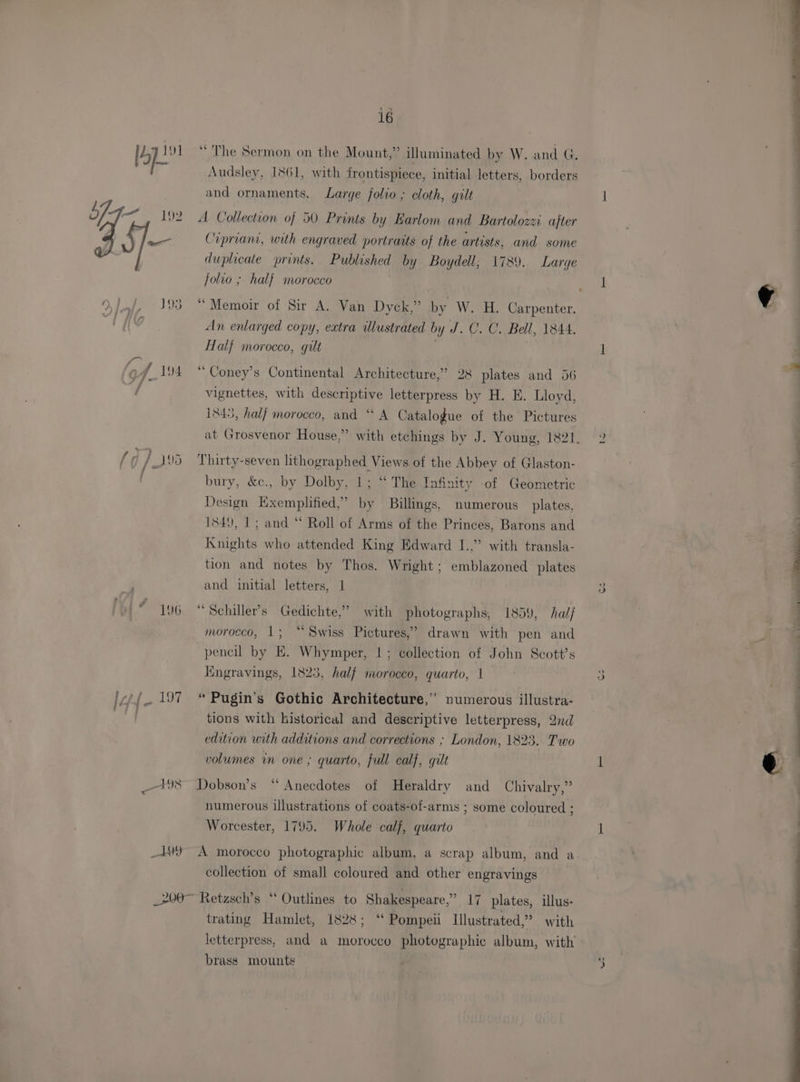 16
191 “The Sermon on the Mount,” illuminated by W. and G.
Audsley, 1861, with frontispiece, initial letters, borders
and ornaments. Large folio ; cloth, gilt 1
192 A Collection of 50 Prints by Earlom and Bartolozzi after
Cipriani, with engraved portraits of the artists, and some
duplicate prints. Published by Boydell, 1789. Large
folio ; half morocco 1
193 “Memoir of Sir A. Van Dyck,” by W. H. Carpenter.
An enlarged copy, extra illustrated by J. C. C. Bell, 1844.
Half morocco, gilt 1
194 “Coney’s Continental Architecture,” 28 plates and 56
vignettes, with descriptive letterpress by H. E. Lloyd,
1843, half morocco, and “A Catalogue of the Pictures
at Grosvenor House,” with etchings by J. Young, 1821. 2
195 Thirty-seven lithographed Views of the Abbey of Glaston-
bury, &c., by Dolby, 1; “The Infinity of Geometric
Design Exemplified,” by Billings, numerous plates,
1849, 1; and “Roll of Arms of the Princes, Barons and
Knights who attended King Edward I.,” with transla-
tion and notes by Thos. Wright; emblazoned plates
and initial letters, 1 3
196 “Schiller’s Gedichte,” with photographs, 1859, half
morocco, 1; “Swiss Pictures,” drawn with pen and
pencil by E. Whymper, 1; collection of John Scott’s
Engravings, 1823, half morocco, quarto, 1 3
197 “Pugin’s Gothic Architecture,” numerous illustra-
tions with historical and descriptive letterpress, 2nd
edition with additions and corrections ; London, 1823. Two
volumes in one ; quarto, full calf, gilt 1
198 Dobson’s “Anecdotes of Heraldry and Chivalry,”
numerous illustrations of coats-of-arms ; some coloured ;
Worcester, 1795. Whole calf, quarto 1
199 A morocco photographic album, a scrap album, and a
collection of small coloured and other engravings
200 Retzsch’s “Outlines to Shakespeare,” 17 plates, illus-
trating Hamlet, 1828; “Pompeii Illustrated,” with
letterpress, and a morocco photographic album, with
brass mounts 3